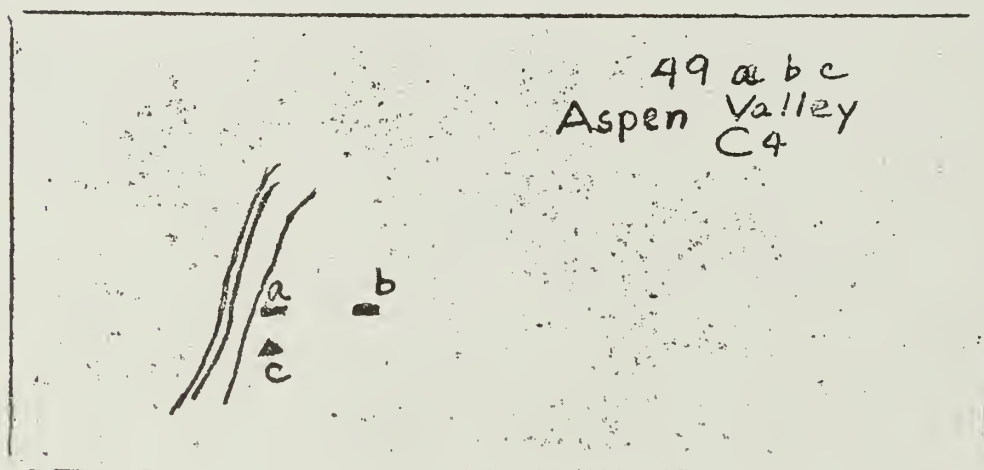 49 a b c
Aspen Valley
C4
a
b
c